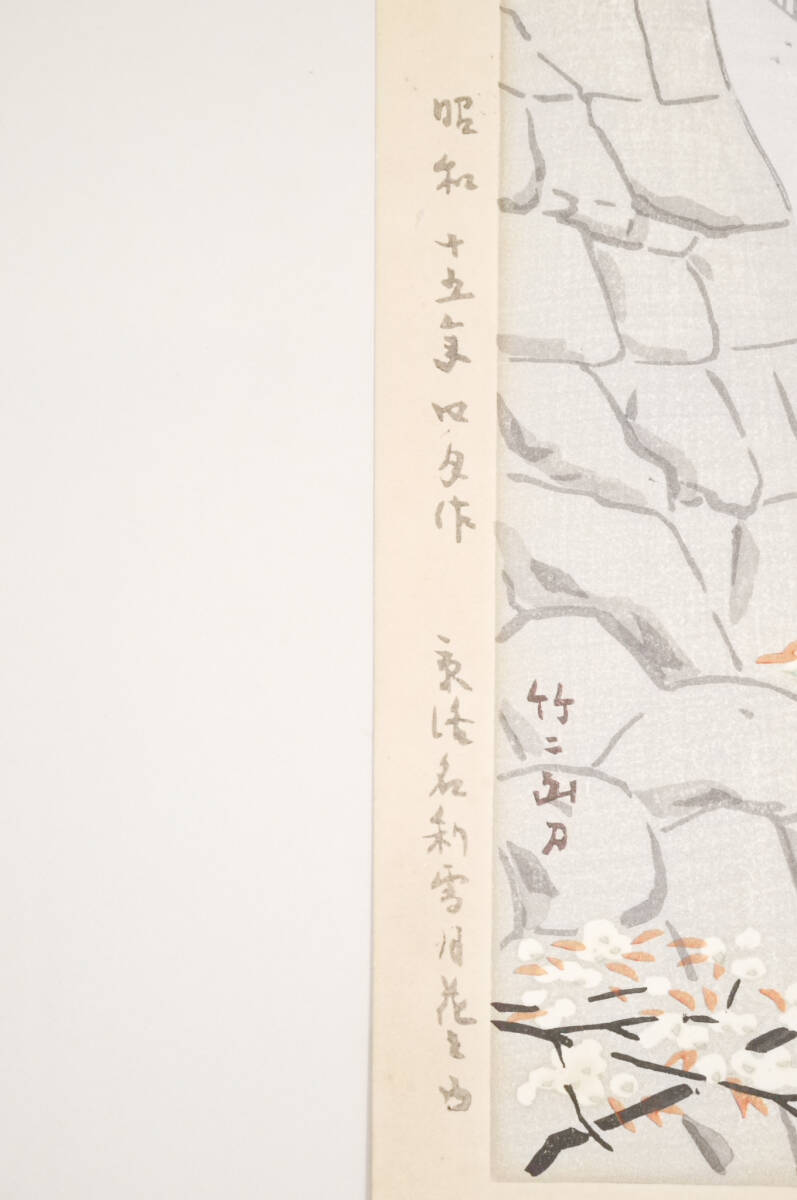 竹二画刀
昭和十五年四月作 京洛名刹雪月花之内